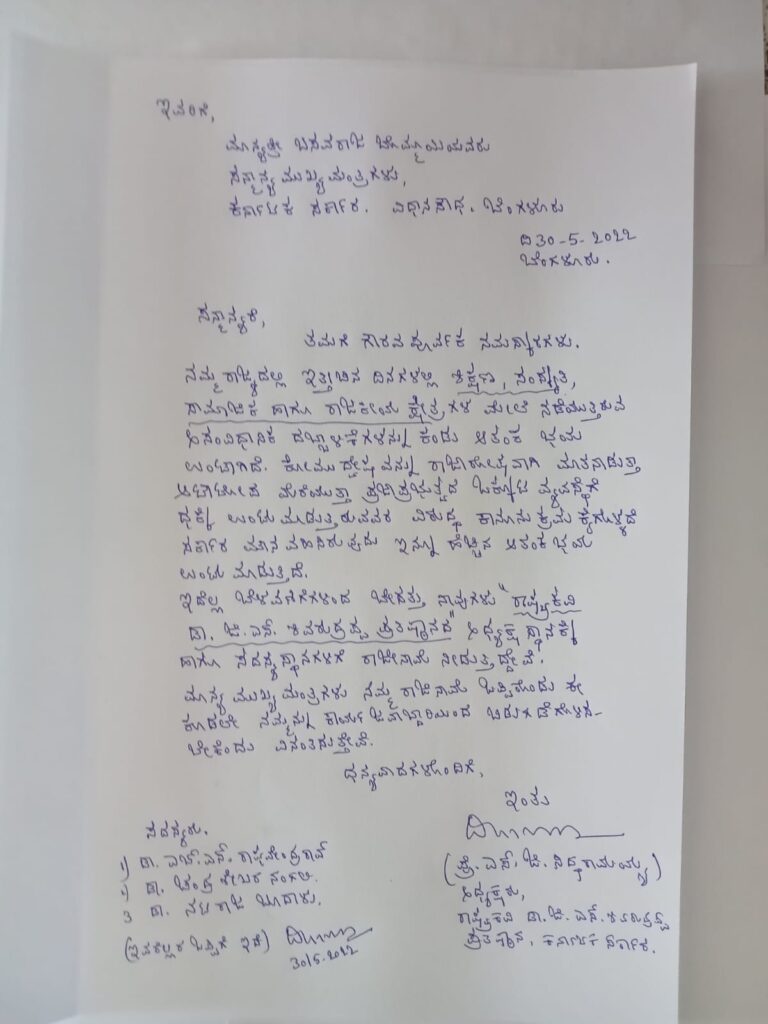 ಇವರಿಗೆ,
ಮಾನ್ಯಶ್ರೀ ಬಸವರಾಜ ಬೊಮ್ಮಾಯಿಯವರು
ಸನ್ಮಾನ್ಯ ಮುಖ್ಯಮಂತ್ರಿಗಳು,
ಕರ್ನಾಟಕ ಸರ್ಕಾರ. ವಿಧಾನಸೌಧ. ಬೆಂಗಳೂರು
ದಿ 30-5-2022
ಬೆಂಗಳೂರು.
ಸನ್ಮಾನ್ಯರೆ,
ತಮಗೆ ಗೌರವ ಪೂರ್ವಕ ನಮಸ್ಕಾರಗಳು.
ನಮ್ಮ ರಾಜ್ಯದಲ್ಲಿ ಇತ್ತೀಚಿನ ದಿನಗಳಲ್ಲಿ ಶಿಕ್ಷಣ, ಸಂಸ್ಕೃತಿ,
ಸಾಮಾಜಿಕ ಹಾಗೂ ರಾಜಕೀಯ ಕ್ಷೇತ್ರಗಳ ಮೇಲೆ ನಡೆಯುತ್ತಿರುವ
ಅಸಂವಿಧಾನಿಕ ದಬ್ಬಾಳಿಕೆಗಳನ್ನು ಕಂಡು ಆತಂಕ ಭಯ
ಉಂಟಾಗಿದೆ. ಕೋಮು ದ್ವೇಷವನ್ನು ರಾಜಾರೋಷವಾಗಿ ಮಾತನಾಡುತ್ತಾ
ಅಟಾಟೋಪ ಮೆರೆಯುತ್ತಾ ಪ್ರಜಾಪ್ರಭುತ್ವದ ಒಕ್ಕೂಟ ವ್ಯವಸ್ಥೆಗೆ
ಧಕ್ಕೆ ಉಂಟುಮಾಡುತ್ತಿರುವವರ ವಿರುದ್ಧ ಕಾನೂನು ಕ್ರಮ ಕೈಗೊಳ್ಳದೆ
ಸರ್ಕಾರ ಮೌನ ವಹಿಸಿರುವುದು ಇನ್ನೂ ಹೆಚ್ಚಿನ ಆತಂಕ ಭಯ
ಉಂಟು ಮಾಡುತ್ತಿದೆ.
ಇದೆಲ್ಲ ಬೆಳವಣಿಗೆಗಳಿಂದ ಬೇಸತ್ತು ನಾವುಗಳು "ರಾಷ್ಟ್ರಕವಿ
ಡಾ. ಜಿ.ಎಸ್. ಶಿವರುದ್ರಪ್ಪ ಪ್ರತಿಷ್ಠಾನದ" ಅಧ್ಯಕ್ಷ ಸ್ಥಾನಕ್ಕೆ
ಹಾಗೂ ಸದಸ್ಯ ಸ್ಥಾನಗಳಿಗೆ ರಾಜೀನಾಮೆ ನೀಡುತ್ತಿದ್ದೇವೆ.
ಮಾನ್ಯ ಮುಖ್ಯಮಂತ್ರಿಗಳು ನಮ್ಮ ರಾಜಿನಾಮೆ ಒಪ್ಪಿಕೊಂಡು ಈ
ಕೂಡಲೇ ನಮ್ಮನ್ನು ಕಾರ್ಯ ಜವಾಬ್ದಾರಿಯಿಂದ ಬಿಡುಗಡೆಗೊಳಿಸ-
ಬೇಕೆಂದು ವಿನಂತಿಸುತ್ತೇವೆ.
ಧನ್ಯವಾದಗಳೊಂದಿಗೆ,
ಇಂತು
(ಪ್ರೊ. ಎಸ್. ಜಿ. ಸಿದ್ಧರಾಮಯ್ಯ)
ಅಧ್ಯಕ್ಷರು,
ರಾಷ್ಟ್ರಕವಿ ಡಾ. ಜಿ. ಎಸ್. ಶಿವರುದ್ರಪ್ಪ
ಪ್ರತಿಷ್ಠಾನ, ಕರ್ನಾಟಕ ಸರ್ಕಾರ.
ಸದಸ್ಯರು.
1) ಡಾ. ಎಚ್. ಎಸ್. ರಾಘವೇಂದ್ರರಾವ್
2) ಡಾ. ಚಂದ್ರಶೇಖರ ನಂಗಲಿ.
3 ಡಾ. ನಟರಾಜ ಬೂದಾಳು.
(ಇವರೆಲ್ಲರ ಒಪ್ಪಿಗೆ ಇದೆ)
30/5.2022